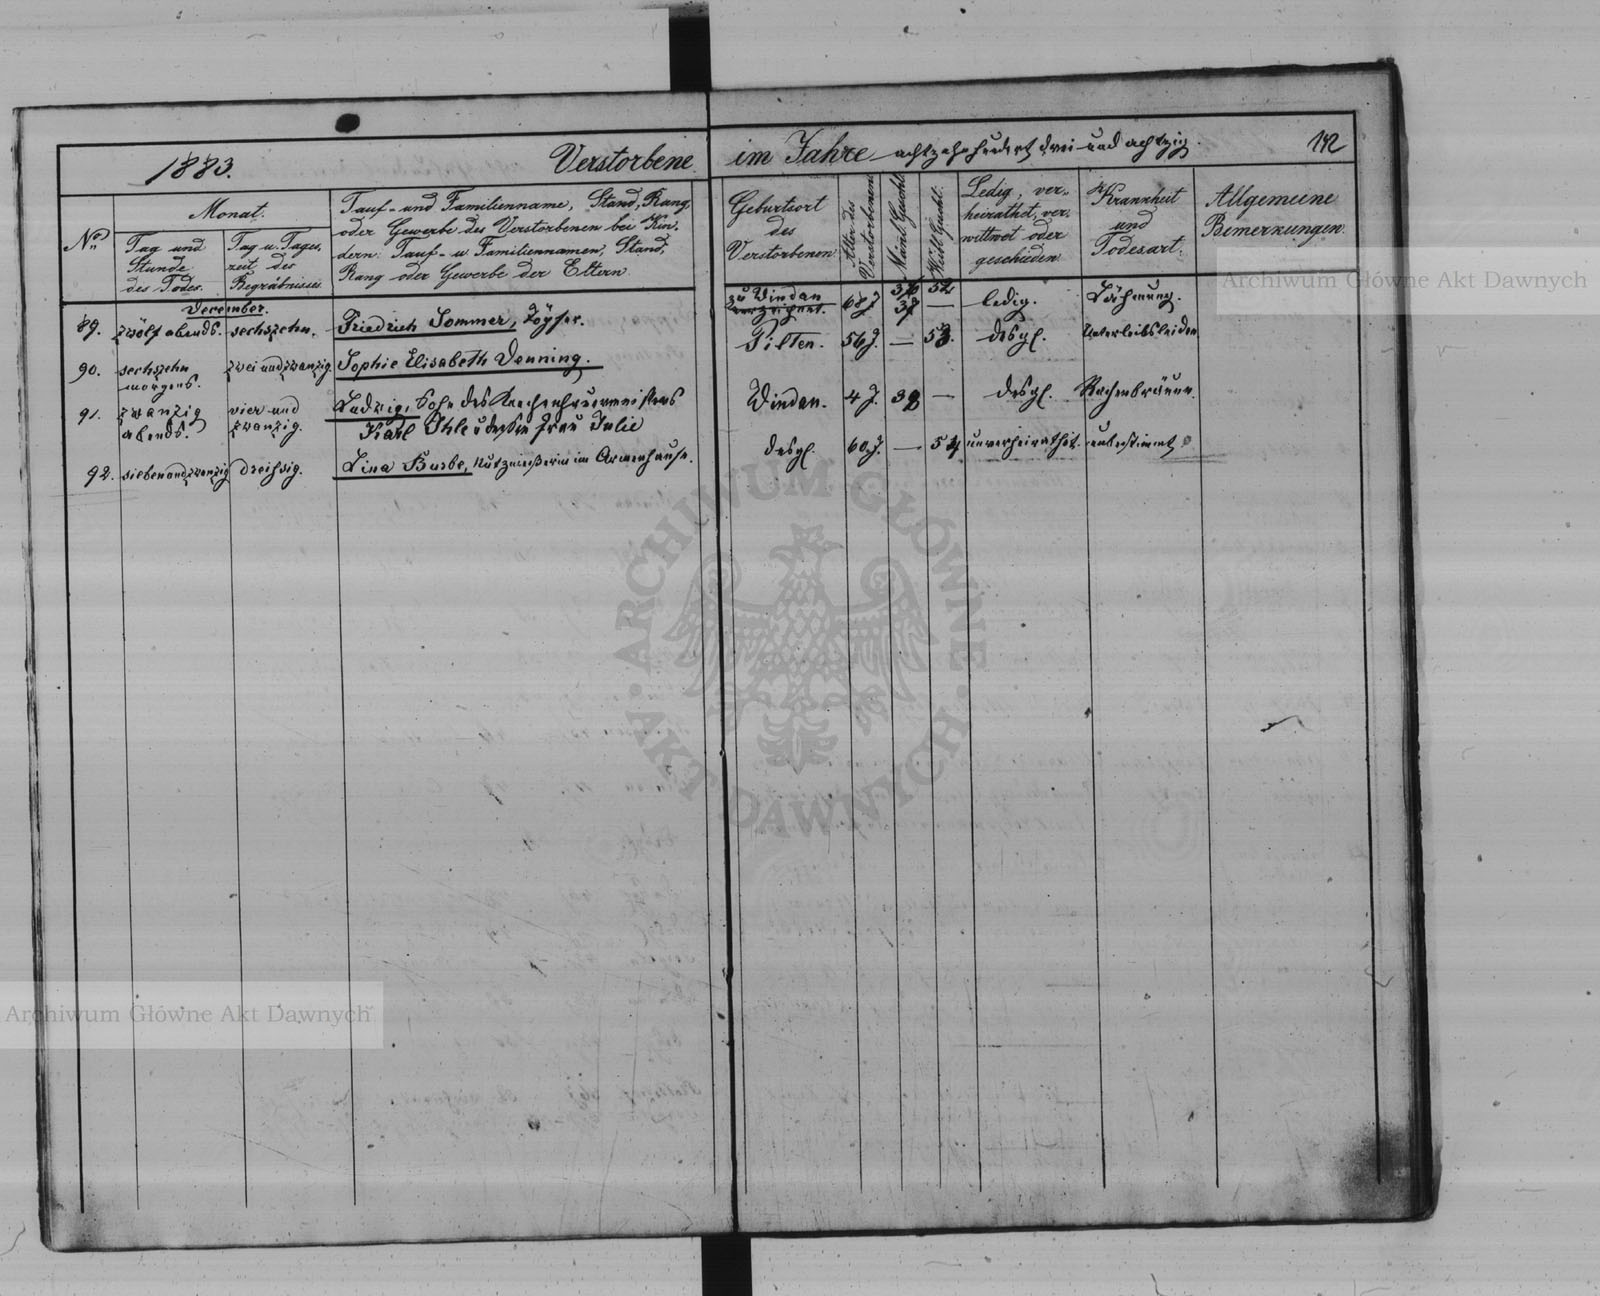 1883.
Verstorbene
im Jahre achtzehnhundert drei und achtzig.
142
No
Monat.
Tag und
Stunde
des Todes.
Tag u. Tages,
zeit des
Begräbnisses
Tauf- und Familienname, Stand, Rang,
oder Gewerbe des Verstorbenen bei Kin-
dern: Tauf- u Familiennamen, Stand,
Rang oder Gewerbe der Eltern
Geburtsort
des
Verstorbenen
Alter des
Verstorbenen
Mänl. Geschl.
Wbl. Geschl.
Ledig, ver-
heirathet, ver-
wittwet oder
geschieden
Krankheit
und
Todesart.
Allgemeine
Bemerkungen
December.
36 52
89. zwölf abends. sechszehn. Friedrich Sommer, Töpfer. zu Windau 68 J. 37 — ledig. Lähmung.
90. sechszehn morgens. zwei und zwanzig Sophie Elisabeth Denning. Pilten. 56 J. — 53. desgl. Unterleibsleiden
91. zwanzig vier und Ludwig, Sohn des
abends. zwanzig. Karl Ihle u dessen Frau Julie Windau. 4 J. 38 — desgl. Rachenbräune.
92. sieben und zwanzig dreissig. Lina Busbe, im Armenhause. desgl. 60 J. — 54 unverheirathet. unbestimmt
Archiwum Główne Akt Dawnych
Archiwum Główne Akt Dawnych
ARCHIWUM GŁÓWNE
AKT DAWNYCH